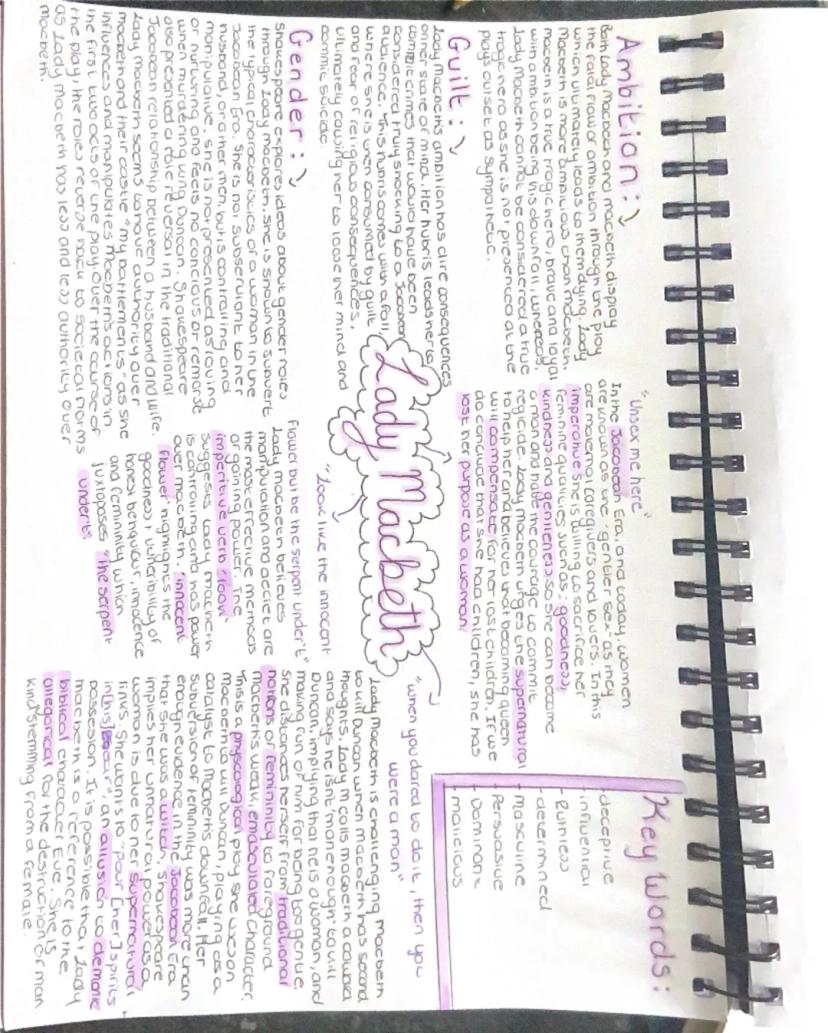 Ambition:
Both Lady Macbeth and macbeth display
the fatal flaw of ambition through the play
which ultimately leads to them dying. Lady
Macbeth is more ambitious than macbeth.
macbeth is a true tragic hero, brave and loyal
with ambition being his downfall, whereas,
Lady Macbeth cannot be considered a true
tragic hero as she is not presented at the
plays outset as sympathetic.
Guilt:
Lady Macbeths ambition has dire consequences
on her state of mind. Her hubris leads her to
commit crimes that would have been
considered truly shocking to a Jacobean
audience. This hubris comes with a fall,
where she is then consumed by guilt
and fear of religious consequences,
ultimately causing her to loose her mind and
commit suicide.
Gender:
Shakespeare explores ideas about gender roles
through Lady macbeth. she is shown to subvert
the typical characteristics of a woman in the
Jacobean Era. She is not subservient to her
husband, or other men, but is controlling and
manipulative. She is not presented as loving
or nurturing and feels no concious or remorse
when murdering king Duncan. Shakespeare
also presents a role reversal in the traditional
Jacobean relationship between a husband and wife.
Lady Macbeth seems to have authority over
Macbeth and their castle "my battlements" as she
influences and manipulates Macbeth's actions in
the first two acts of the play. Over the course of
the play, the roles reverse back to societal norms
as Lady Macbeth has less and less authority over
macbeth.
Lady Macbeth
"Unsex me here"
In the Jacobean Era, and today, women
are known as the 'gentler sex' as they
are maternal caregivers and lovers. In this
imperative she is willing to sacrifice her
feminine qualities such as; goodness,
kindness and gentleness so she can become
a man and have the courage to commit
regicide. Lady macbeth urges the supernatural
to help her and believes that becoming queen
will compensate for her lost children. If we
do conclude that she had children, she has
lost her purpose as a woman.
"Look like the innocent
flower but be the serpent under't"
Lady macbeth believes
manipulation and deciet are
the most effective methods
of gaining power. The
imperitive verb "look"
suggests Lady macbeth
is controlling and has power
over macbeth. 'innocent
flower' highlights the
goodness, vulnerability of
honest behaviour, innocence
and femininity which
juxtaposes "the serpent
under't"
Key Words:
- deceptive
- influential
- Ruthless
- determined
- Masculine
- Persuasive
- Dominant
- malicious
"when you dared to do it, then you
were a man"
Lady Macbeth is challenging Macbeth
to kill Duncan when macbeth has second
thoughts. Lady M calls macbeth a coward
and says he isn't 'man enough' to kill
Duncan, implying that he is a woman, and
making fun of him for being too gentle.
She distances herself from traditional
notions of femininity to foreground
Macbeth's weak, emasculated character.
This is a physcological ploy she uses on
macbeth to kill Duncan, playing as a
catalyst to Macbeth's downfall. Her
subversion of femininity was more than
enough evidence in the Jacobean Era
that she was a witch. Shakespeare
implies her unnatural power as a
woman is due to her supernatural
links. She wants to "pour [her] spirits
in [his] ear", an allusion to demonic
possesion. It is possible that Lady
macbeth is a reference to the
biblical character Eve. She is
allegorical for the destruction of man
kind stemming from a female.